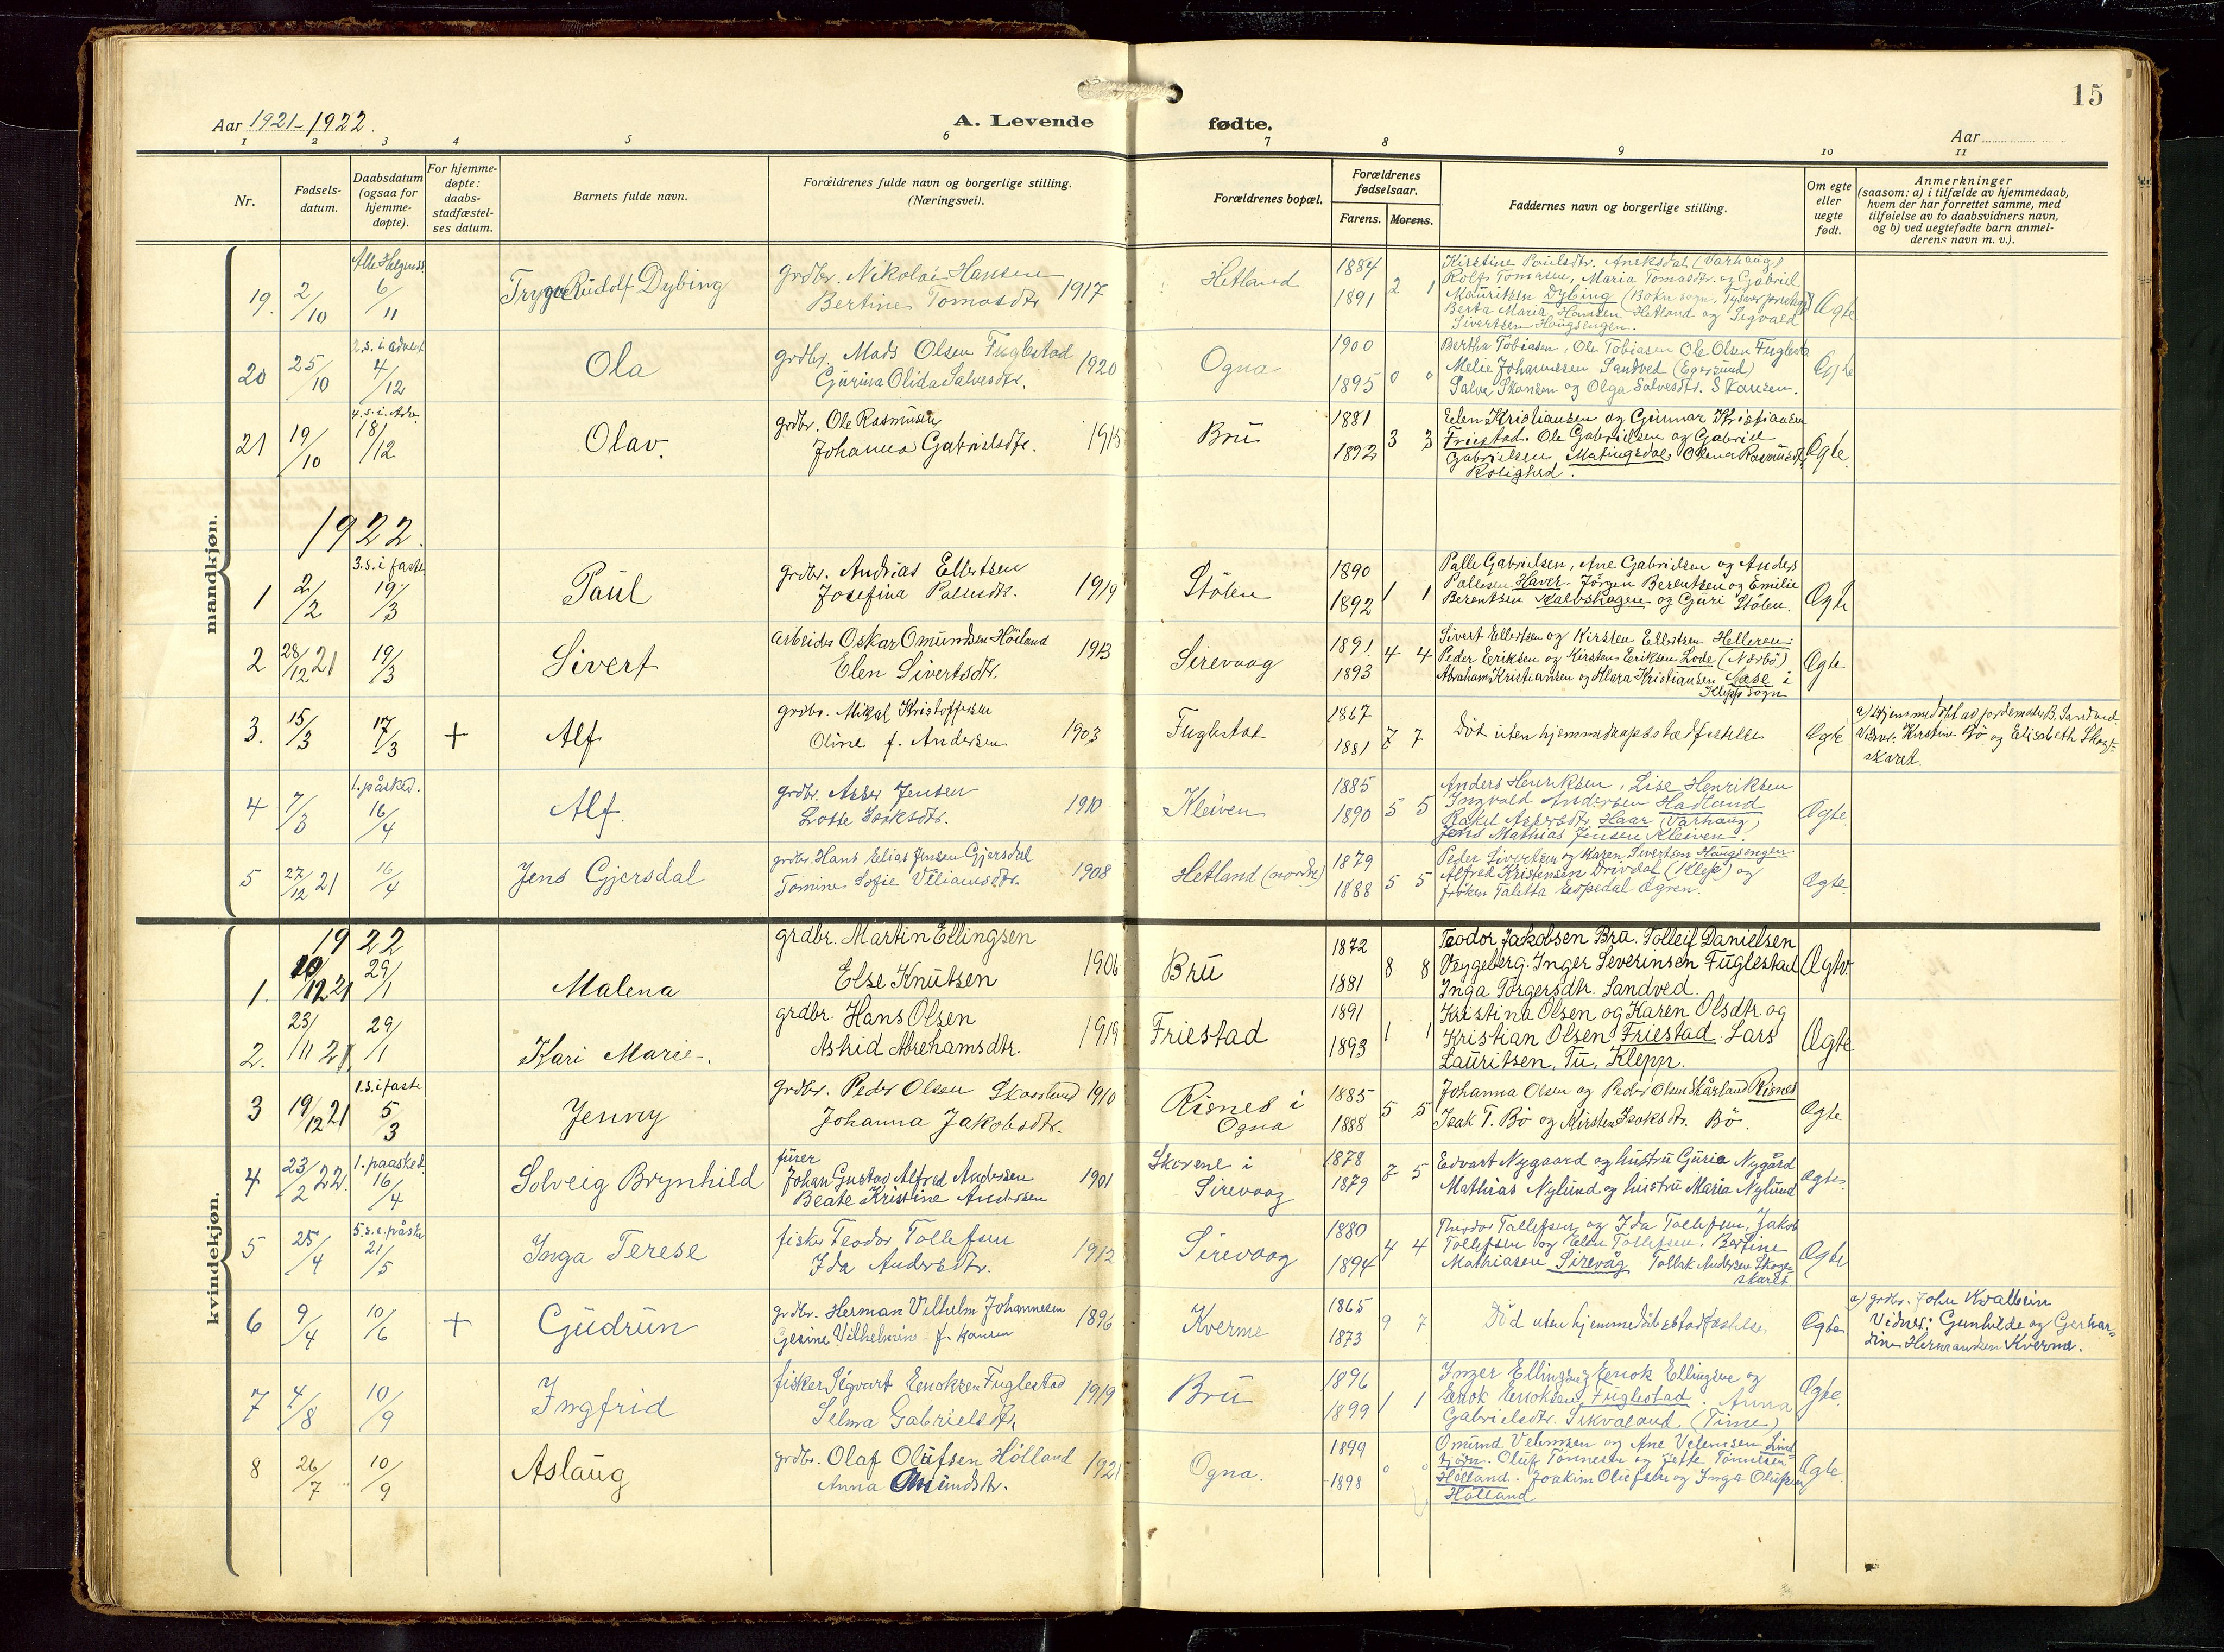 Aar 1921-1922.
A. Levende fødte.
Aar
15
1 2 3 4 5 6 7 8 9 10 11
Nr.
Fødsels-
datum.
Daabsdatum
(ogsaa for
hjemme-
døpte).
For hjemme-
døpte:
daabs-
stadfæstel-
ses datum.
Barnets fulde navn.
Forældrenes fulde navn og borgerlige stilling.
(Næringsvei).
Forældrenes bopæl.
Forældrenes
fødselsaar.
Farens. Morens.
Faddernes navn og borgerlige stilling.
Om egte
eller
uegte
født.
Anmerkninger
(saasom: a) i tilfælde av hjemmedaab,
hvem der har forrettet samme, med
tilføielse av to daabsvidners navn,
og b) ved uegtefødte barn anmel-
derens navn m. v.).
mandkjøn.
19. 2/10 Alle Helgenss. 6/11 Trygve Rudolf Dybing
grdbr. Nikolai Hansen
Bertine Tomasdtr 1917
Hetland 1884 1891 2 1
Kirstine Paulsdtr. (Varhaug)
Rolf Tomasen, Maria Tomasdtr. og Gabriel
Mauritsen Dybing (Bokn sogn, Tysvær
Berta Marie Hansen Hetland og Sigvald
Sivertsen Haugsengen.
Ægte
20 25/10 2.s. i advent 4/12 Ola
grdbr. Mads Olsen Fuglestad
Gurina Olida Salvesdtr. 1920
Ogna 1900 1895 0 0
Bertha Tobiasen, Ole Tobiasen Ole Olsen
Melie Johannesen Sandved (Egersund)
Salve Skansen og Olga Salvesdtr. Skansen.
Ægte
21 19/10 4.s.i. Adv. 18/12 Olav.
grdbr. Ole Rasmusen
Johanna Gabrielsdtr. 1915
Brü 1881 1892 3 3
Elen Kristiansen og Gunnar Kristiansen
Friestad. Ole Gabrielsen og Gabriel
Gabrielsen Matingsdal. Olena Rasmusdtr.
Rolighed.
Ægte
1922.
1 2/2 3.s. i faste 19/3 Paul
grdbr. Andrias Ellertsen
Josefina Pallesdtr. 1919
Stölen 1890 1892 1 1
Palle Gabrielsen, Ane Gabrielsen og Anders
Pallesen Haver. Jörgen Berentsen og Emilie
Berentsen Kalvshagen og Guri Stölen.
Ægte
2 28/12 21 19/3 Sivert
arbeider Oskar Omundsen Höiland
Elen Sivertsdtr. 1913
Sirevaag 1891 1893 4 4
Sivert Ellertsen og Kirsten Ellertsen Helleren.
Peder Eriksen og Kirsten Eriksen Lode (Nærbö)
Abraham Kristiansen og Klara Kristiansen Næse i
Klepp sogn
Ægte
3. 15/3 17/3 + Alf
grdbr. Mikal Kristoffersen
Oline f. Andersen 1903
Fuglestad 1867 1881 7 7
Död uten hjemmedaapsstadfestelse
Ægte
a) Hjemmedöpt av jordemoder B. Sandved
Vidner: Kirstine Bö og Elisabeth Skoge-
skaret.
4 7/3 1. påsked. 16/4 Alf.
grdbr. Asser Jensen
Lotte Isaksdtr. 1910
Kleiven 1885 1890 5 5
Anders Henriksen, Lise Henriksen
Ingvald Andersen Hadland
Rakel Assersdtr. Haar (Varhaug)
Jens Mathias Jensen Kleiven.
Ægte.
5 27/12 21 16/4 Jens Gjersdal
grdbr. Hans Elias Jensen Gjersdal
Tomine Sofie Viliamsdtr. 1908
Hetland (nordre) 1879 1888 5 5
Peder Sivertsen og Karen Sivertsen Haugsengen
Alfred Kristensen Drivdal (Klep) og
fröken Taletta Espedal Ogren.
Ægte.
kvindekjøn.
1922
1. 10/12 21 29/1 Malena
grdbr. Martin Ellingsen
Else Knutsen 1906
Brü 1872 1881 8 8
Teodor Jakobsen Bru. Tolleif Danielsen
Veggeberg. Inger Severinsen Fuglestad
Inga Torgersdtr. Sandved.
Ægte
2. 23/11 21 29/1 Kari Marie.
grdbr. Hans Olsen
Astrid Abrehamsdtr. 1919
Friestad 1891 1893 1 1
Kristina Olsen og Karen Olsdtr og
Kristian Olsen Friestad. Lars
Lauritsen, Tu, Klepp.
Ægte
3 19/12 21 1.s. i faste 5/3 Jenny
grdbr. Peder Olsen Skaarland 1910
Johanna Jakobsdtr.
Risnes i
Ogna 1885 1888 5 5
Johanna Olsen og Peder Olsen Skårland Risnes
Isak T. Bö og Kirsten Isaksdtr. Bö.
Ægte
4 23/2 22. 1. paasked. 16/4 Solveig Brynhild
fürer
Johan Gustav Alfred Andersen
Beate Kristine Andersen 1901
Skorene i
Sirevaag 1878 1879 7 5
Edvart Nygaard og hustru Guria Nygård
Mathias Nylund og hustru Maria Nylund
Ægte.
5 25/4 5.s.e. påske 21/5 Inga Terese
fisker Teodor Tollefsen
Ida Andersdtr. 1912
Sirevaag 1880 1894 4 4
Theodor Tollefsen og Ida Tollefsen, Jakob
Tollefsen og Elen Tollefsen. Bertine
Mathiasen Sirevåg Tollak Andersen Skoge-
skaret
Ægte
6 9/4 10/6 + Gudrun
grdbr. Herman Vilhelm Johannesen
Gesine Vilhelmine f. Hansen 1896
Kverme 1865 1873 9 7
Död uten hjemmedåbstadfæstelse
Ægte
a) grdbr. John Kvalbein
Vidner: Gunhilde og Gerhar-
dine Hermandsen Kverme.
7 4/8 10/9 Ingfrid
fisker Sigvart Enoksen Fuglestad
Selma Gabrielsdtr. 1919
Brü 1896 1899 1 1
Inger Ellingsen og Enok Ellingsen og
Enok Enoksen Fuglestad. Anna
Gabrielsdtr. (Time)
Ægte.
8 26/7 10/9 Aslaug
grdbr. Olaf Olufsen Hölland
Anna Omundsdtr. 1921
Ogna. 1899 1898 0 0
Omund Velemsen og Ane Velemsen Lind-
tjörn. Oluf Tönnesen og Jette Tönnesen
Hölland. Joakim Olufsen og Inga Olufsen
Hölland
Ægte.